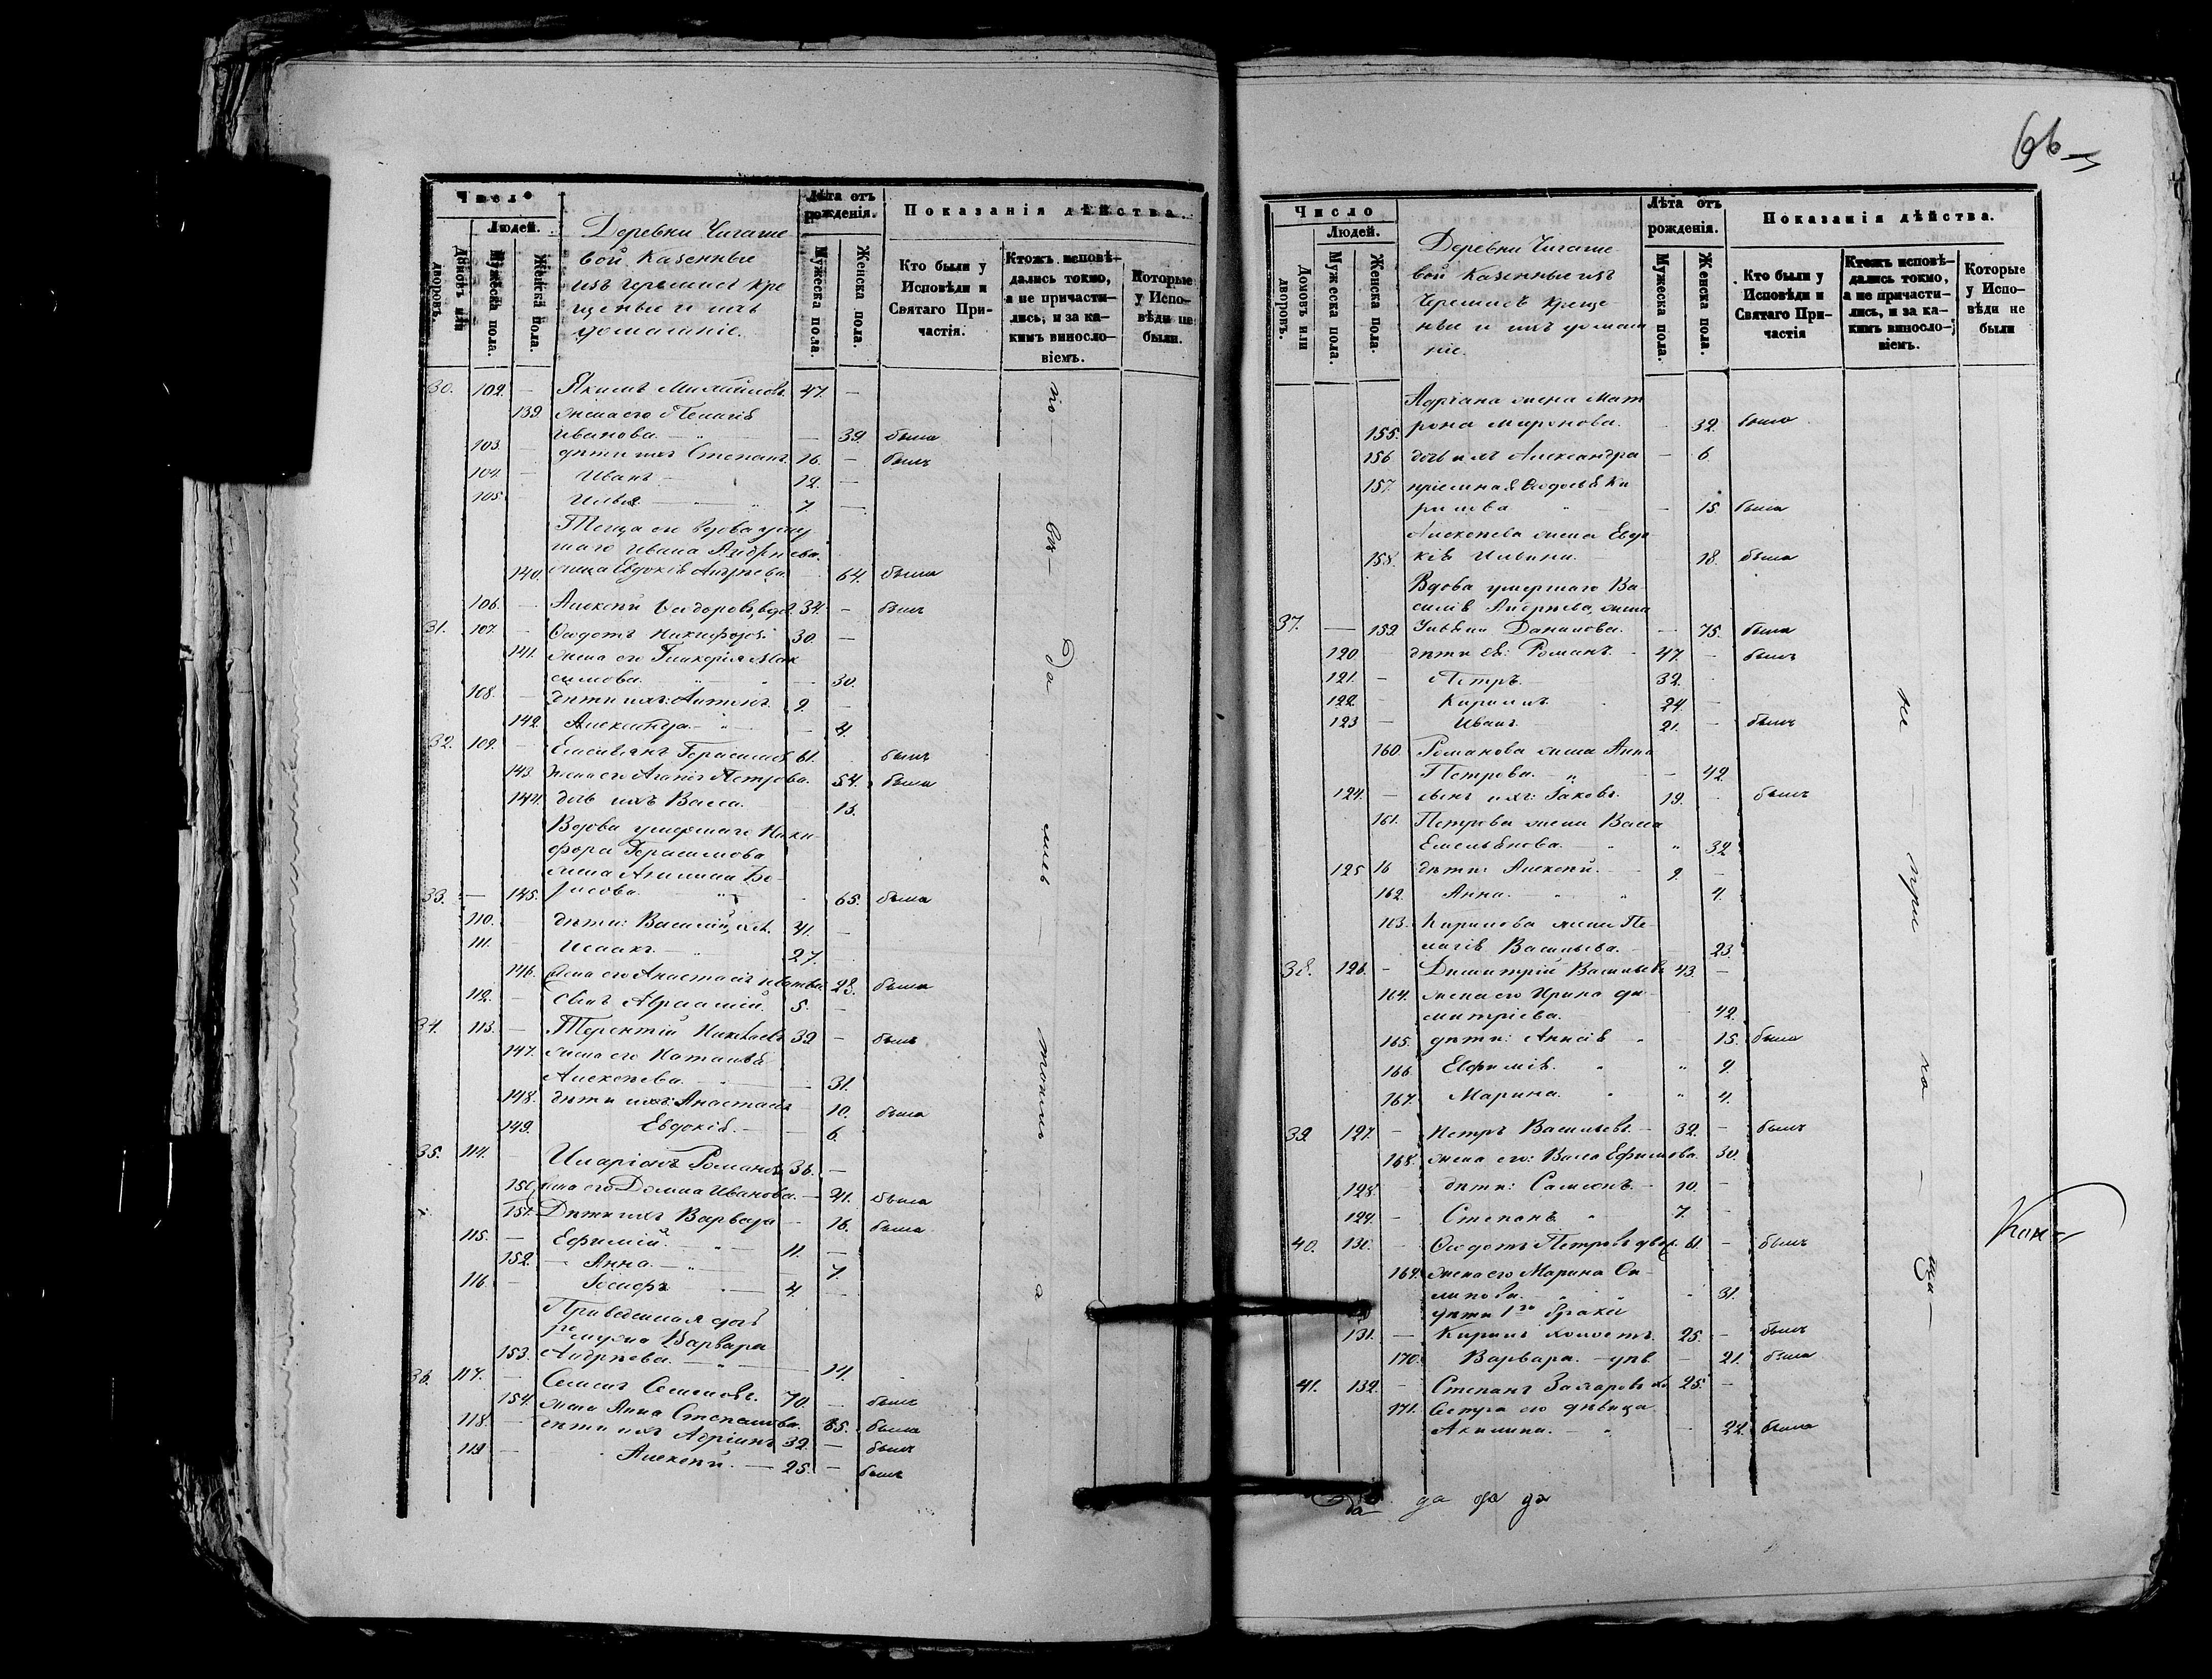 Число
Людей.
Домовъ или дворовъ.
Мужеска пола.
Женска пола.
Деревни Чигаше
вой казенные
изъ черемисъ кре
щеные и ихъ
домашніе.
Лѣта отъ рожденія.
Мужеска пола.
Женска пола.
Показанія дѣйства.
Кто были у Исповѣди и Святаго Причастія.
Ктожъ исповѣдались токмо, а не причастились, и за какимъ винословіемъ.
Которые у Исповѣди не были.
30. 102. — Якимъ Михайловъ. 47. —
139. жена его Пелагія
Иванова. — 39. была
103. — дѣти ихъ Степанъ. 16. — былъ
104. — Иванъ. 12. —
105. Илья 7. —
Теща его вдова умер
шаго Ивана Андреева
140. жена Евдокія Андреева. 64. была
106. — Алексѣй Сидоровъ, вдов. 34. — былъ
31. 107. — Ѳедотъ Никифоровъ 30 —
141. жена его Гликерія Мак
симова. — 30.
108. — дѣти ихъ: Антонъ. 9. —
142. Александра. — 4.
32. 109. — Емельянъ Герасимовъ 61. былъ
143. жена его Агапія Петрова. 54. была
144. дочь ихъ Васса. 13.
Вдова умершаго Ники
фора Герасимова
жена Акилина Бо
33. — 145. рисова. 65. была
110. дѣти: Василій, хол. 41. —
111. Исаакъ. 27.
146. жена его Анастасія 28. была
112. — сынъ Авраамій. 5. —
34. 113. — Терентій Николаевъ 32 — былъ
147. жена его Наталія
Алексѣева. — 31.
148. дѣти ихъ: Анастасія 10. была
149. Евдокія. — 6.
35. 114. — Иларіонъ Романовъ 36. —
150. жена его Домна Иванова. — 41. была
151. Дѣти ихъ Варвара — 16. была
115. — Ефимій. 11. —
152. — Анна. — 7.
116. — Іосифъ 4. —
Приведенная отъ
мужа Варвара
153. Андреева. — 14.
36. 117. — Семенъ Семеновъ. 70. — былъ
154. жена Анна Степанова. 65. была
118. — дѣти ихъ Адріанъ 32. — былъ
119 — Алексѣй. — 25. — былъ
по — во — да — миль — токмо — а
66
Число
Людей.
Домовъ или дворовъ.
Мужеска пола.
Женска пола.
Деревни Чигаше
вой казенные изъ
черемисъ креще
ные и ихъ домаш
ніе.
Лѣта отъ рожденія.
Мужеска пола.
Женска пола.
Показанія дѣйства.
Кто были у Исповѣди и Святаго Причастія
Ктожъ исповѣдались токмо, а не причастились, и за какимъ винословіемъ.
Которые у Исповѣди не были
Адріана жена Мат
155. рона Миронова. 32. была
156 дочь ихъ Александра — 6.
157. пріемная Ѳедосья Ки
рилова — 15. была
Алексѣева жена Евдо
158. кія Ильина. — 18. была
Вдова умершаго Ва
силія Андреева, жена
37. — 159. Ульяна Данилова. — 75. была
120 — дѣти ея: Романъ. — 47. — былъ
121. — Петръ. 32.
122 — Кирилъ. 24. —
123 — Иванъ. 21. — былъ
160 Романова жена Анна
Петрова. — 42.
124. — сынъ ихъ: Іаковъ. 19. — былъ
161. Петрова жена Васса
Емельянова. 32
125 16 дѣти: Алексѣй. 9. —
162. Анна. 4.
163. Кирилова жена Пе
лагія Васильева. — 23.
38. 126. — Димитрій Васильевъ 43. —
164. жена его Ирина Ди
митріева. — 42.
165. дѣти: Анисія 15. была
166. Евфимія. 9.
167. Марина. 4.
39. 127. — Петръ Васильевъ — 32. — былъ
168. жена его: Васса Ефимова. 30.
128. дѣти: Самсонъ. — 10. —
129. — Степанъ 7. —
40. 130. — Ѳедотъ Петровъ 61. — былъ
169. жена его Марина Ѳи
липова. 31.
дѣти 1го брака
131. — Кирилъ холостъ. 25. — былъ
170. Варвара. — 21. была
41. 132. — Степанъ Захаровъ хо. 25. —
171. Сестра его дѣвица
Акилина. — 22. была
не — при — ча — щи —
да да да да